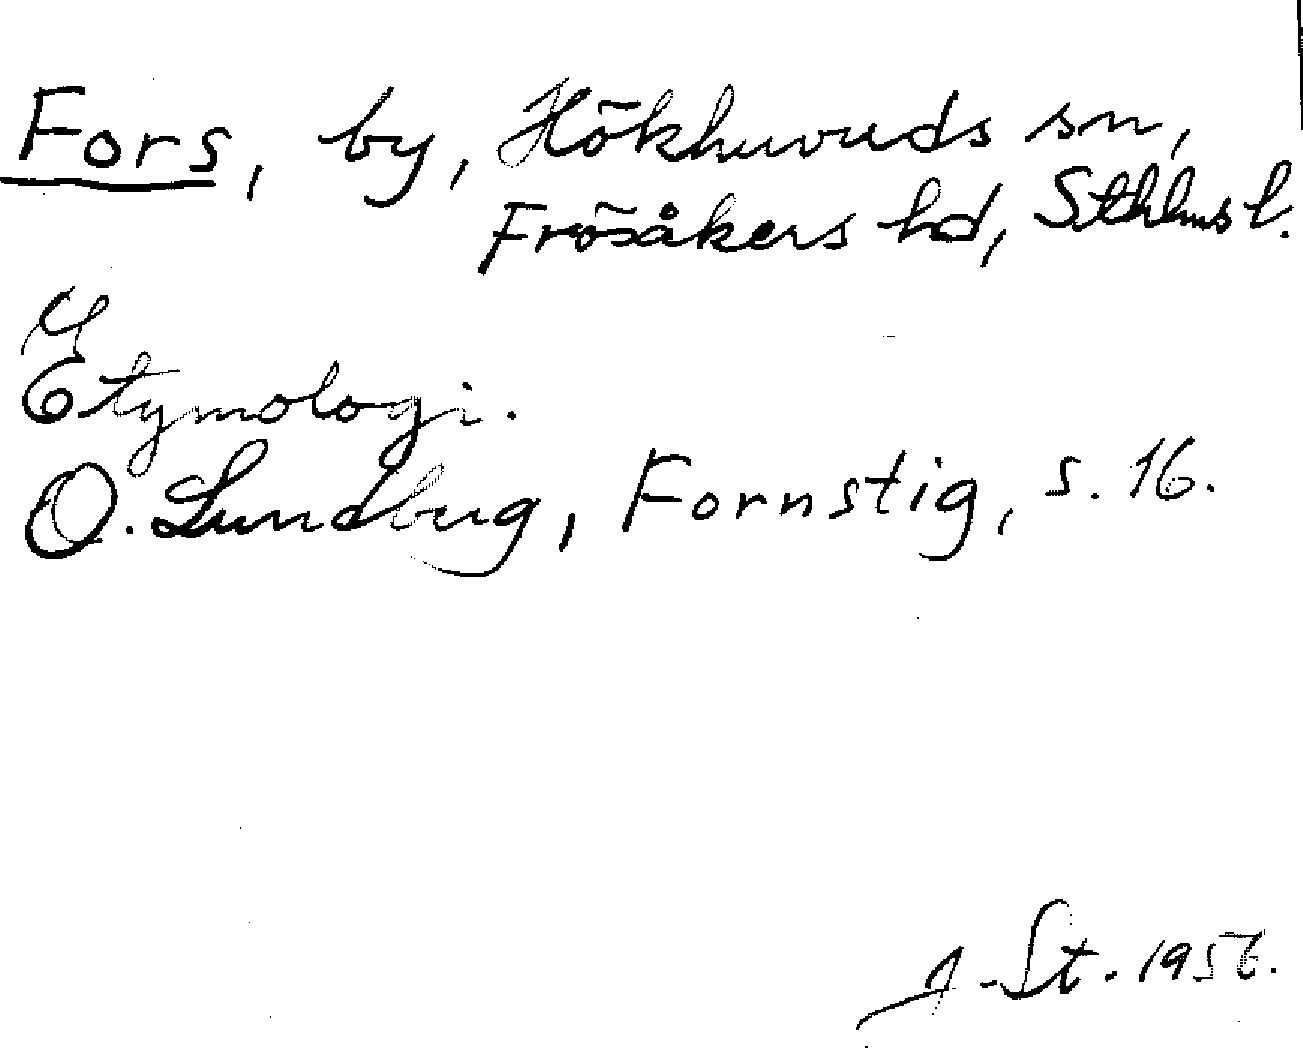 Fors, by, Hökhuvuds sn,
Frösåkers hd, Sthlms l.
Etymologi.
O. Lundberg, Fornstig, s. 16.
J. St. 1956.